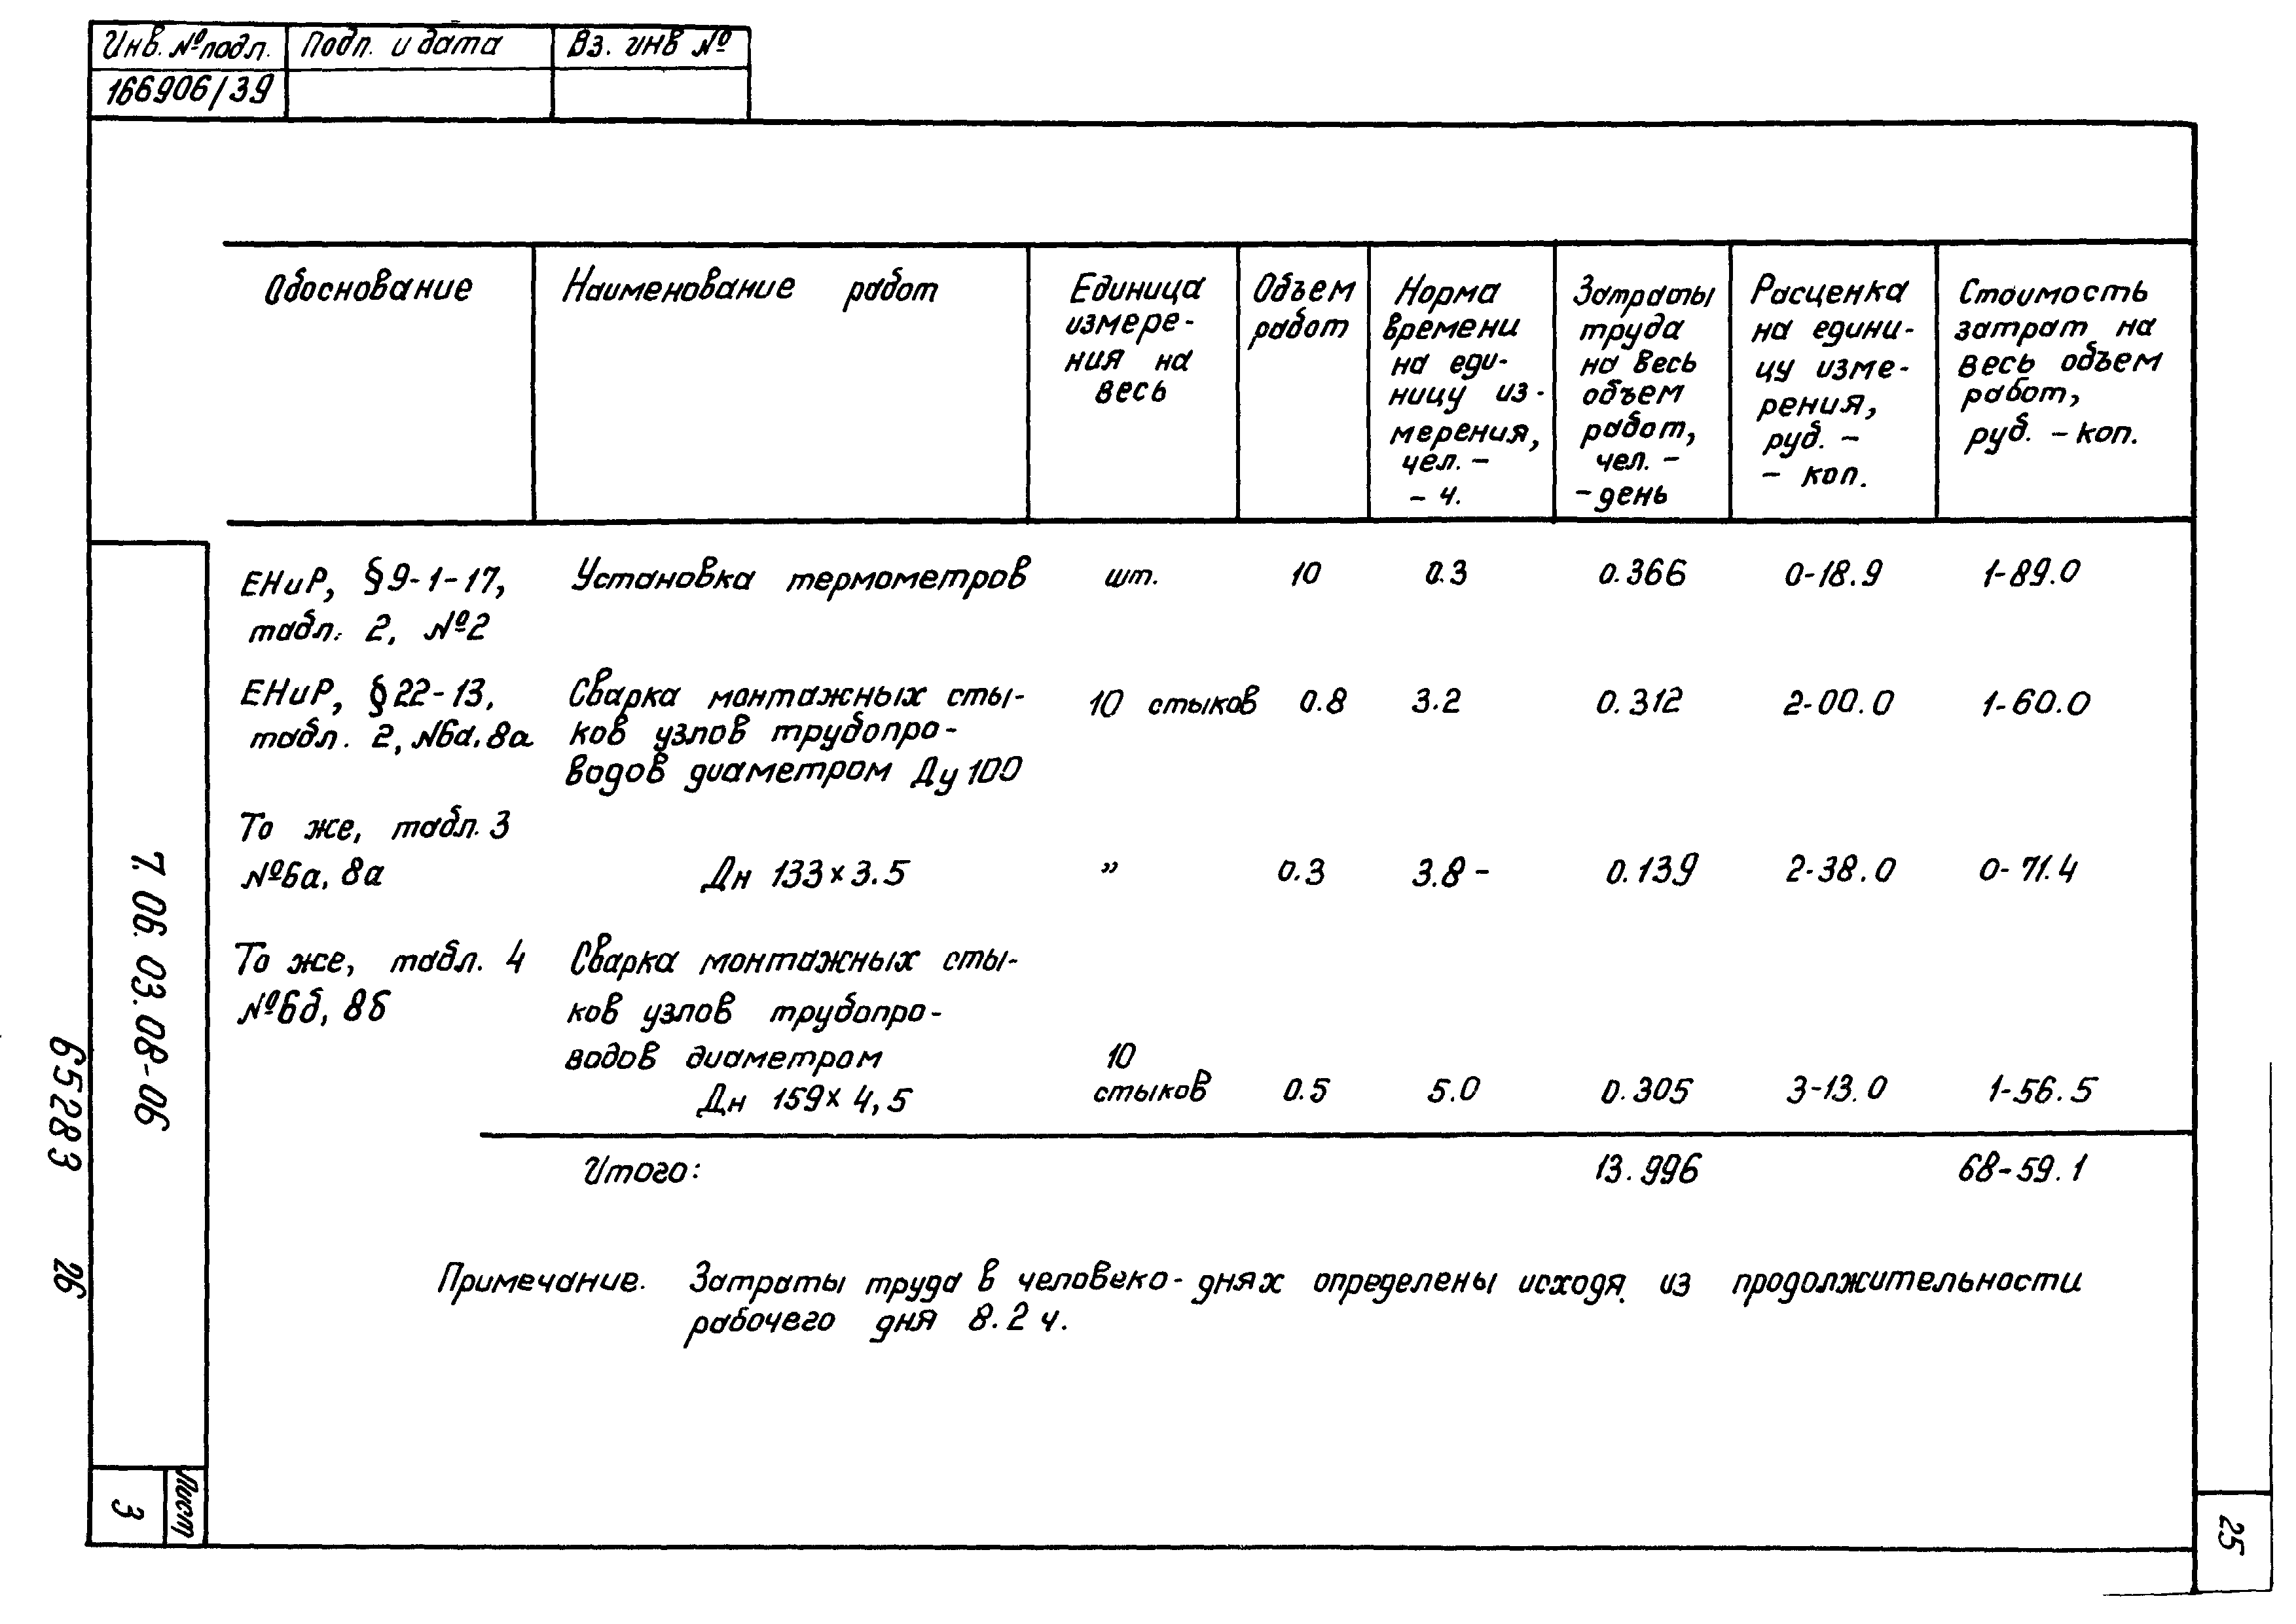 Инв. № подл. Подп. и дата Вз. инв №
166906/39
Обоснование
Наименование работ
Единица
измере-
ния на
весь
Объем
работ
Норма
времени
на еди-
ницу из-
мерения,
чел.-
- ч.
Затраты
труда
на весь
объем
работ,
чел. -
- день
Расценка
на едини-
цу изме-
рения,
руб. -
- коп.
Стоимость
затрат на
весь объем
работ,
руб. - коп.
ЕНиР, § 9-1-17, Установка термометров шт. 10 0.3 0.366 0-18.9 1-89.0
табл. 2, №2
ЕНиР, § 22-13, Сварка монтажных сты- 10 стыков 0.8 3.2 0.312 2-00.0 1-60.0
табл. 2, №6а, 8а ков узлов трубопро-
водов диаметром Ду 100
То же, табл. 3
№6а, 8а Дн 133×3.5 " 0.3 3.8- 0.139 2-38.0 0-71.4
То же, табл. 4 Сварка монтажных сты-
№6б, 8б ков узлов трубопро-
водов диаметром 10
Дн 159×4,5 стыков 0.5 5.0 0.305 3-13.0 1-56.5
Итого: 13.996 68-59.1
Примечание. Затраты труда в человеко-днях определены исходя из продолжительности
рабочего дня 8.2 ч.
7.06.03.08-06
65283 26
Лист
3
25